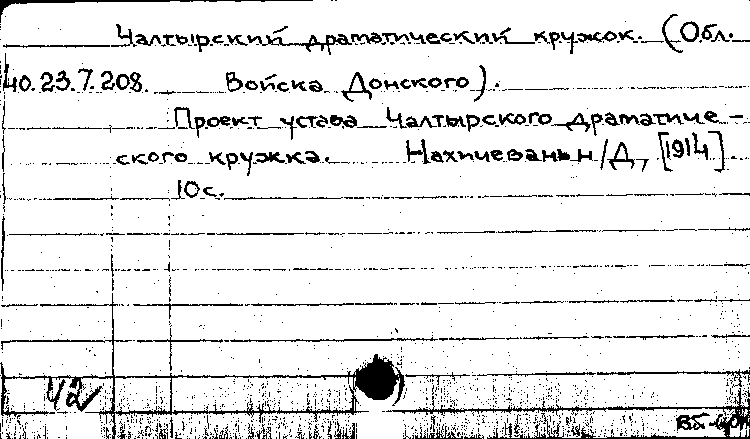 Чалтырский драматический кружок. (Обл.
40.23.7.208. Войска Донского).
Проект устава Чалтырского драматиче-
ского кружка. Нахичевань н/Д, [1914].
10 с.
42